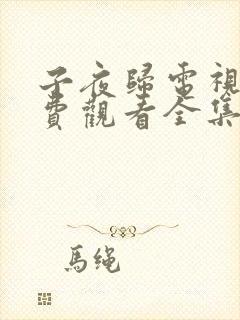 子夜歸電視
費觀看全集
馬绳